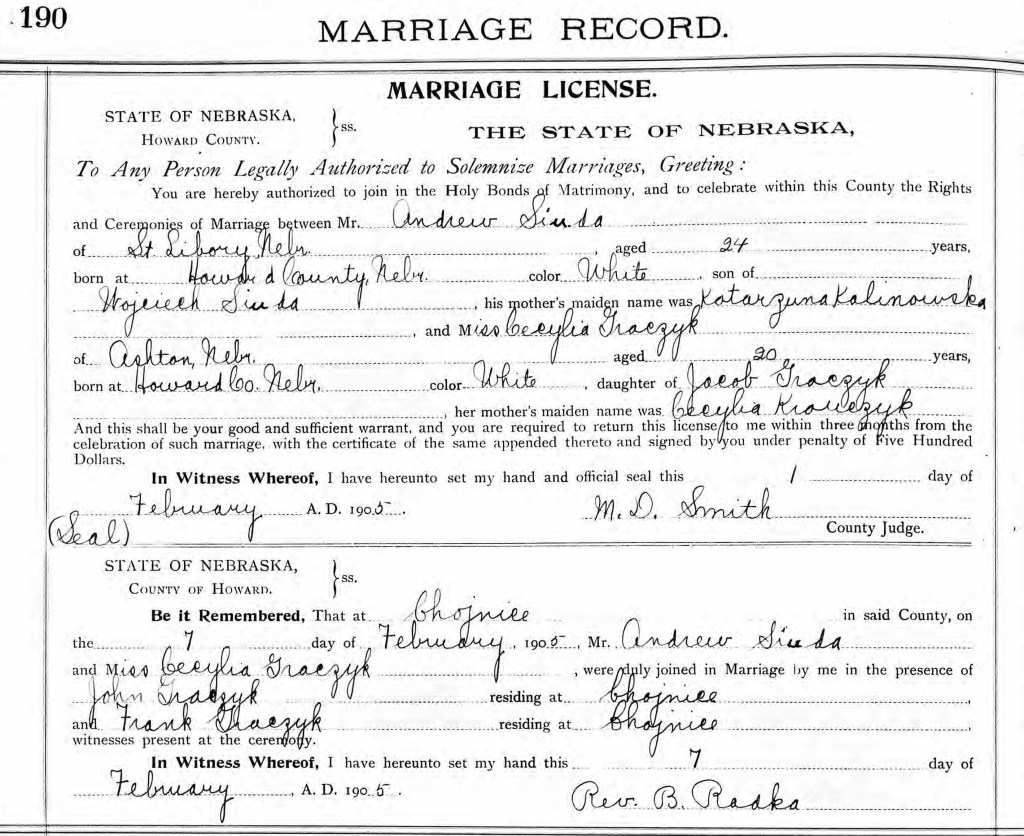 190
MARRIAGE RECORD.
MARRIAGE LICENSE.
STATE OF NEBRASKA,
HOWARD COUNTY.
ss.
THE STATE OF NEBRASKA,
To Any Person Legally Authorized to Solemnize Marriages, Greeting:
You are hereby authorized to join in the Holy Bonds of Matrimony, and to celebrate within this County the Rights
and Ceremonies of Marriage between Mr. Andrew Siuda
of St Libory, Nebr. , aged 24 years,
born at Howard County, Nebr. color White , son of
Wojciech Siuda , his mother's maiden name was Katarzyna Kalinowska
, and Miss Cecylia Graczyk
of Ashton, Nebr. aged 20 years,
born at Howard Co. Nebr. color White , daughter of Jacob Graczyk
, her mother's maiden name was Cecylia Krowczyk
And this shall be your good and sufficient warrant, and you are required to return this license to me within three months from the
celebration of such marriage, with the certificate of the same appended thereto and signed by you under penalty of Five Hundred
Dollars.
In Witness Whereof, I have hereunto set my hand and official seal this 1 day of
February A. D. 1905.
M. D. Smith
(Seal)
County Judge.
STATE OF NEBRASKA,
COUNTY OF HOWARD.
ss.
Be it Remembered, That at Chojnice in said County, on
the 7 day of February, 1905, Mr. Andrew Siuda
and Miss Cecylia Graczyk , were duly joined in Marriage by me in the presence of
John Graczyk residing at Chojnice ,
and Frank Graczyk residing at Chojnice ,
witnesses present at the ceremony.
In Witness Whereof, I have hereunto set my hand this 7 day of
February , A. D. 1905.
Rev. B. Radka